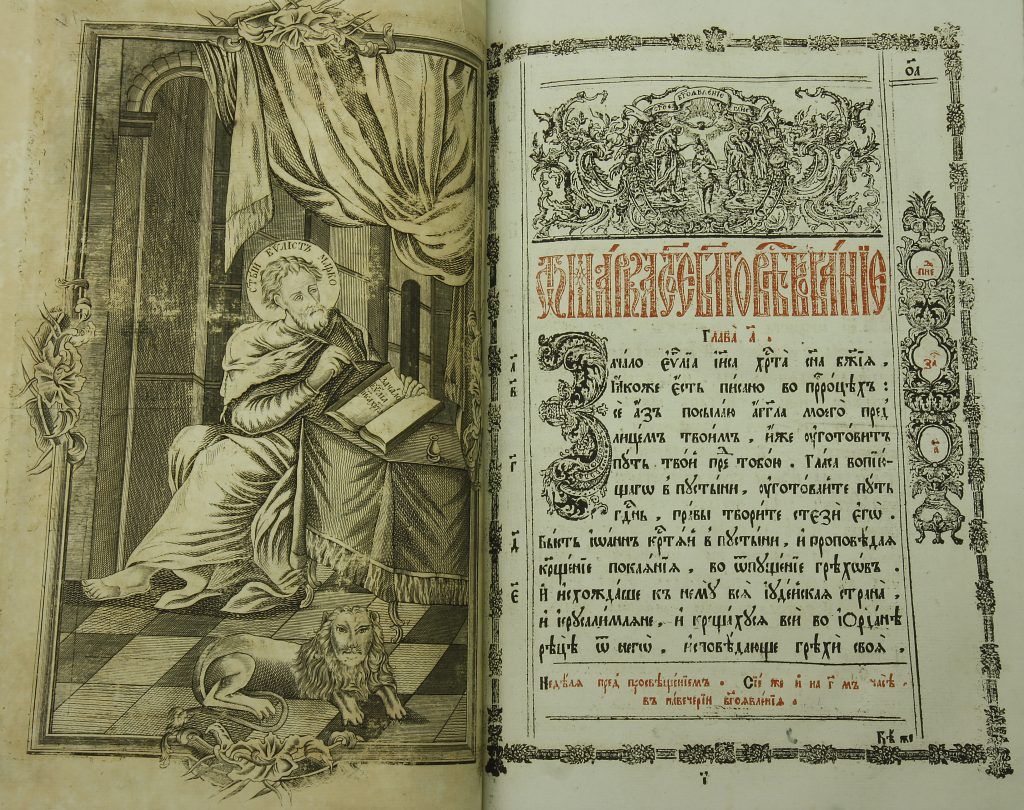 СТЫЙ ЕѴЛИСТЪ МАРКО
БГОЯВЛЕНІЕ
Ѿ МАРКА СТ҃ОЕ БЛ҃ГОВѢСТВОВАНІЕ
Глава̀ а҃ .
Зачало еѵ҃лїа і҃иса хр҃та сн҃а бж҃їѧ ,
Ꙗкоже есть писано во прⷪ҇роцѣхъ :
се азъ посылаю аг҃гла моего пред̾
лицемъ твоимъ , иже ѹготовитъ
путь твой преⷣ тобою . Гласъ вопїю-
щагѡ в пустыни , ѹготовайте путь
гдⷭ҇нь , правы творите стези егѡ .
Бысть іѡаннъ крⷭ҇тѧй в пустыни , и проповѣдаѧ
крⷳ҇щенїе покаѧнїѧ , во ѿпущенїе грѣхѡвъ .
И исхождаше къ нему всѧ іудейскаѧ страна ,
и іерⷭ҇лимлѧне , и крⷳ҇щахусѧ вси во їорданѣ
рѣцѣ ѿ негѡ , исповѣдающе грѣхи своѧ .
Недѣлѧ пред̾ просвѣщенїемъ . Сїе же и на г҃ мъ часѣ
въ навечерїи бг҃оѧвленїѧ .
а҃
в҃
г҃
д҃
є҃
за҃
а҃
Бѣ же
і҃